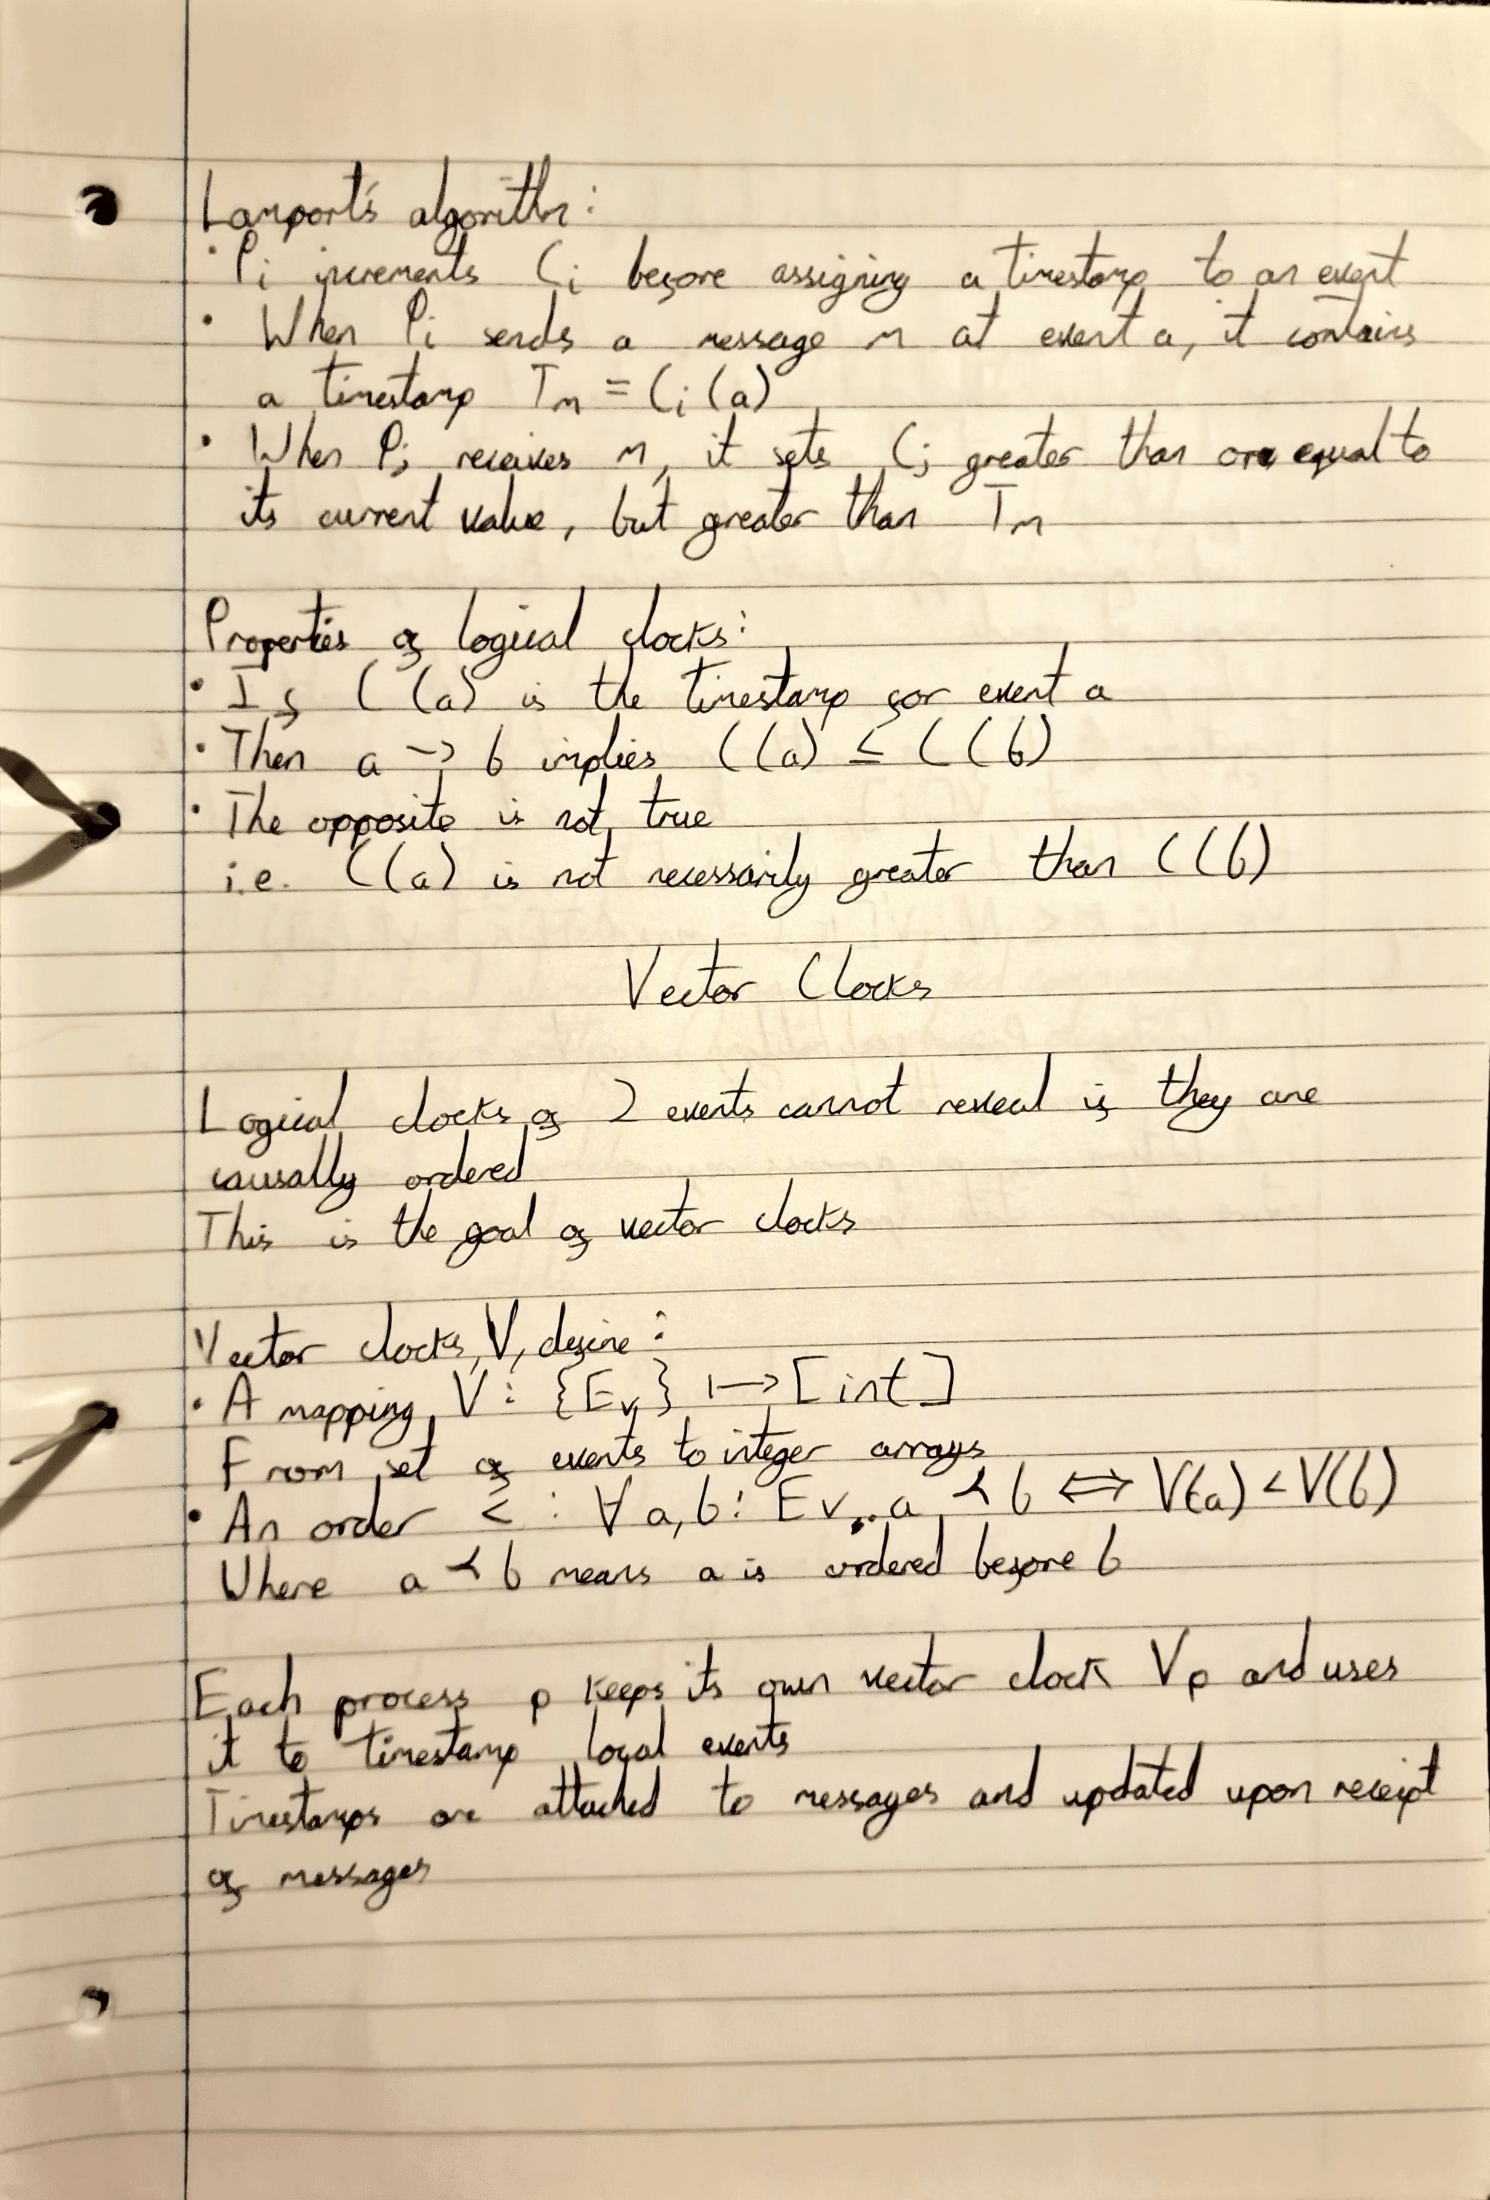 Lamport's algorithm:
• Pi increments Ci before assigning a timestamp to an event
• When Pi sends a message m at event a, it contains
a timestamp Tm = Ci(a)
• When Pj receives m, it sets Cj greater than or equal to
its current value, but greater than Tm
Properties of logical clocks:
• If C(a) is the timestamp for event a
• Then a → b implies C(a) ≤ C(b)
• The opposite is not true
i.e. C(a) is not necessarily greater than C(b)
Vector Clocks
Logical clocks of 2 events cannot reveal if they are
causally ordered
This is the goal of vector clocks
Vector clocks, V, define:
• A mapping V: {Ev} ↦ [int]
From set of events to integer arrays
• An order < : ∀ a,b: Ev.. a ≺ b ⟺ V(a) < V(b)
Where a ≺ b means a is ordered before b
Each process p keeps its own vector clock Vp and uses
it to timestamp local events
Timestamps are attached to messages and updated upon receipt
of messages